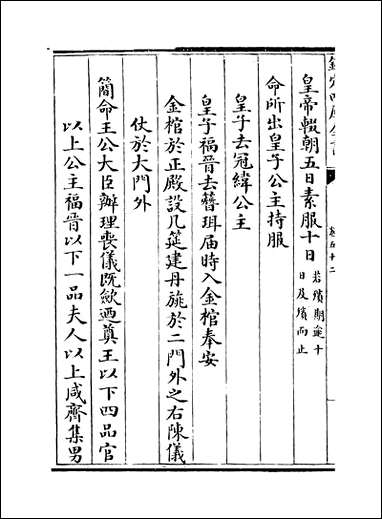 皇帝輟朝五日素服十日若殯期逾十
日及殯而止
命所出皇子公主持服
皇子去冠緯公主
皇子福晉去簪珥屆時入金棺奉安
金棺於正殿設几筵建丹旐於二門外之右陳儀
仗於大門外
簡命王公大臣辦理喪儀既斂迺奠王以下四品官
以上公主福晉以下一品夫人以上咸齊集男